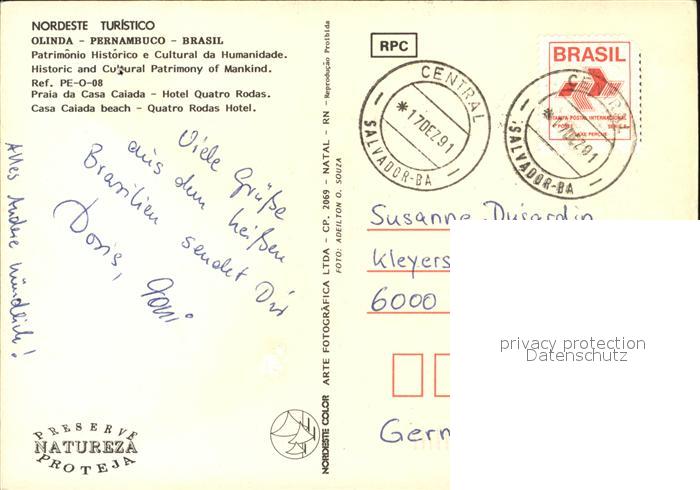 NORDESTE TURÍSTICO
OLINDA - PERNAMBUCO - BRASIL
Patrimônio Histórico e Cultural da Humanidade.
Historic and Cultural Patrimony of Mankind.
Ref. PE-O-08
Praia da Casa Caiada - Hotel Quatro Rodas.
Casa Caiada beach - Quatro Rodas Hotel.
Viele Grüße
aus dem heißen
Brasilien sendet Dir
Doris,
Alles Andere mündlich!
PRESERVE
NATUREZA
PROTEJA
NORDESTE COLOR ARTE FOTOGRÁFICA LTDA - CP. 2069 - NATAL - RN - Reprodução Proibida
FOTO: ADEILTON O. SOUZA
RPC
CENTRAL
*17DEZ91
SALVADOR-BA
BRASIL
TARIFA POSTAL INTERNACIONAL
TAXE PERÇUE
17DEZ91
SALVADOR-BA
Susanne Dujardin
Kleyers
6000
Germ
privacy protection
Datenschutz